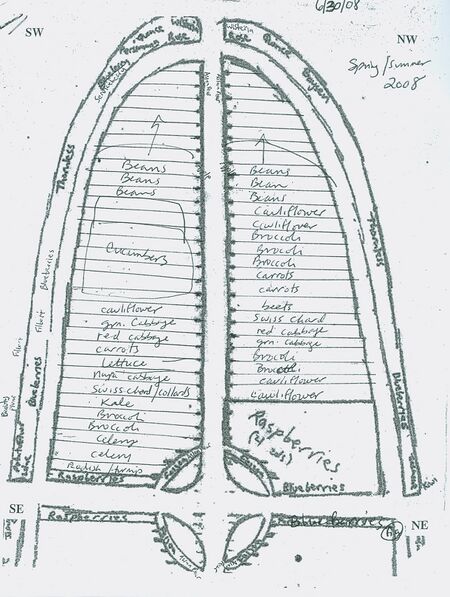 6/30/08
SW
NW
Spring/Summer
2008
Western
Rose
Quince
Persimmon
Blueberry
Serviceberry
Thornless
Blueberries
Filbert
Filbert
Blueberries
Beans
Beans
Beans
Cucumbers
cauliflower
grn. Cabbage
red cabbage
carrots
Lettuce
Napa cabbage
Swiss chard/collards
Kale
Brocoli
Brocoli
Celeny
celeny
Radish/turnip
Raspberries
Western
Rose
Quince
Boysen
Thornless
Blueberries
Beans
Bean
Beans
Cauliflower
Cauliflower
Broccoli
Brocoli
Brocoli
carrots
carrots
beets
Swiss chard
red cabbage
grn. Cabbage
Brocoli
Brocoli
cauliflower
cauliflower
Raspberries
Blueberries
Kiwi
SE
Raspberries
Blueberries
NE